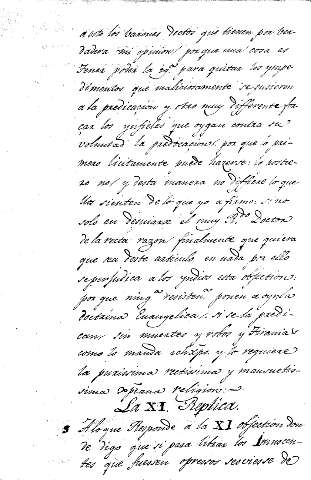 auto los varones doctos que tienen por ver-
dadera mi opinion porque una cosa es
tener poder la yg.ª para quitar los ympe-
dimentos que maliciosamente se pusieren
a la predicacion y otro muy diferente for
car los ynfieles que oygan contra su
voluntad la predicacion, por que lo pri-
mero licitamente puede hacerse: lo postre-
ro no; y desta manera no difiere lo que
ellos sienten de lo que yo afirmo: no
solo en desviarse el muy R.do Doctor
de la recta razon; finalmente que quiera
que sea deste articulo en nada por ello
se perjudica a los yndios esta objection;
por que ning.os resisten ponen a oyr la
doctrina Euangelica, si se la predi-
can, sin muertes y robos y tirania
como lo manda xpo. y lo requiere
la purissima rectissima y mansuetis-
sima xp̄iana religion.
La XI. Replica.
3 A lo que Responde a la XI objection don
de digo que si para librar los Innocen-
tes que fuesen opresos se